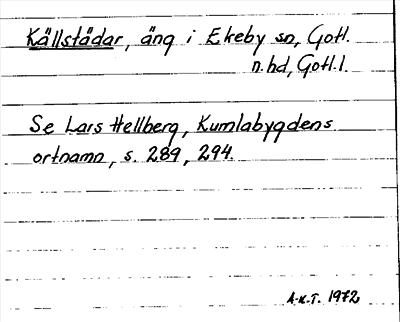 Källstädar, äng i Ekeby sn, Gotl.
n. hd, Gotl. l.
Se Lars Hellberg, Kumlabygdens
ortnamn, s. 289, 294.
A-K.T. 1972